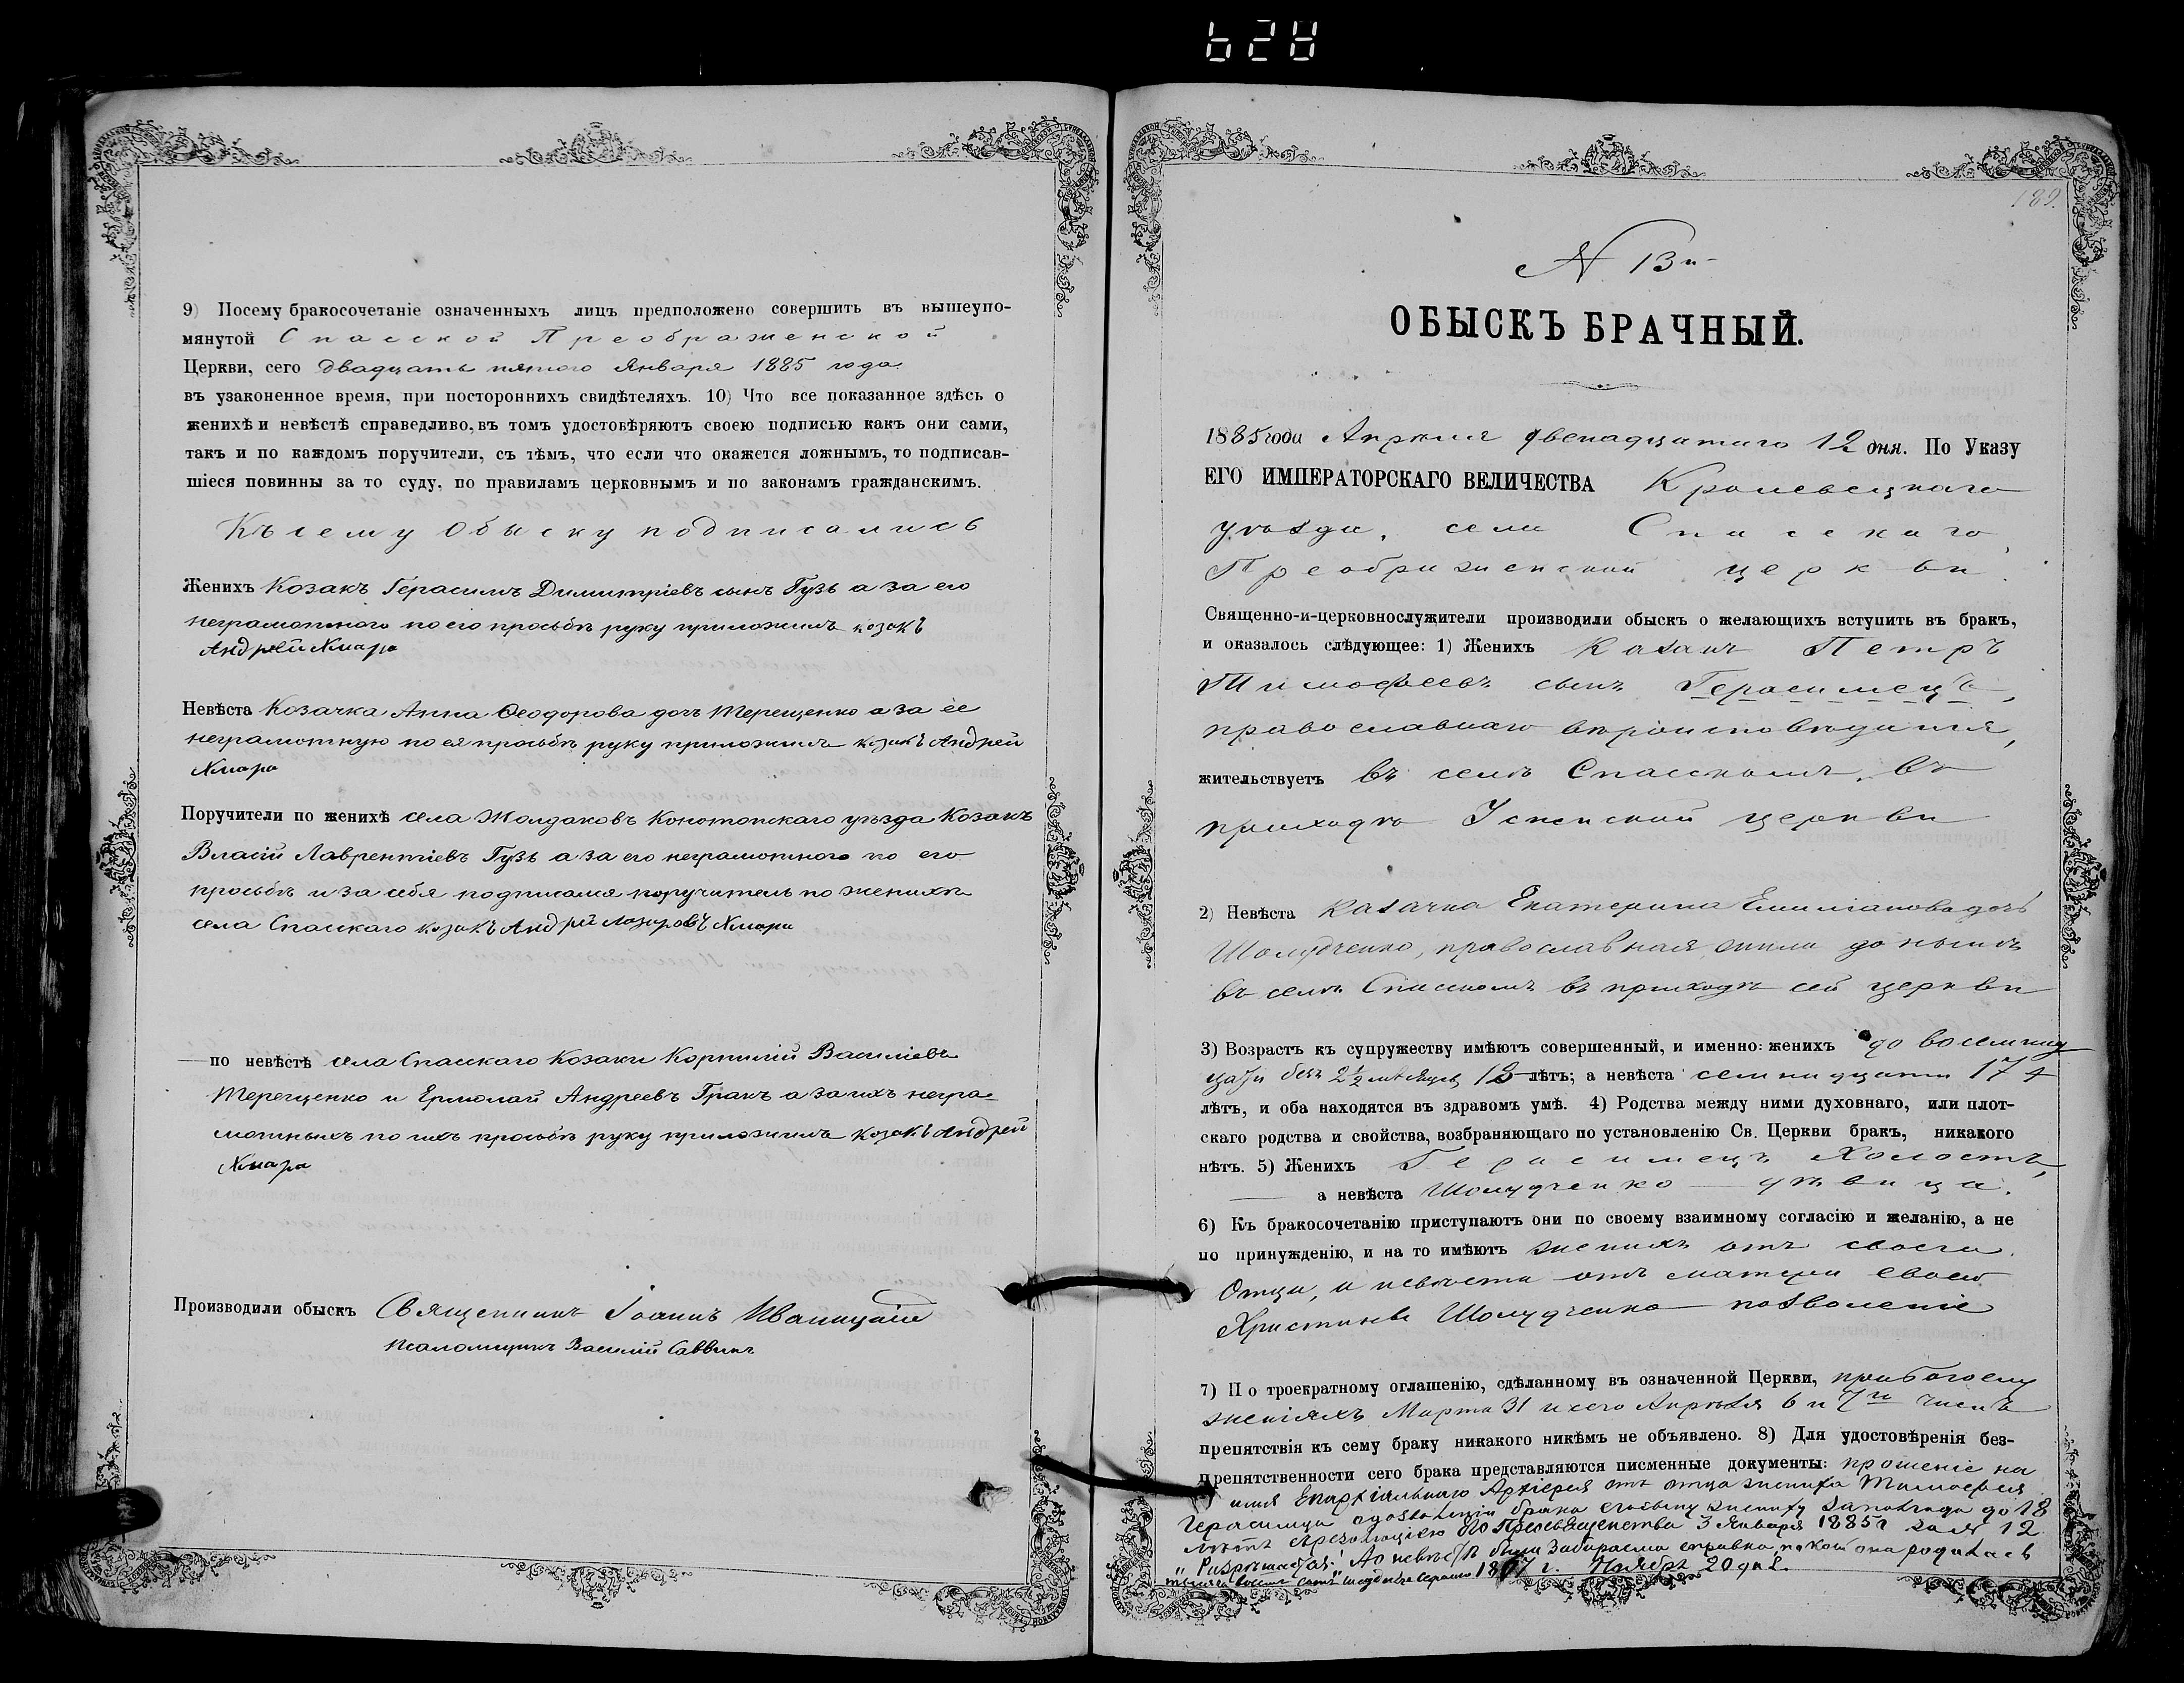 628
9) Посему бракосочетаніе означенныхъ лицъ предположено совершить въ вышеупо-
мянутой Спасской Преображенской
Церкви, сего двадцать пятого Января 1885 года
въ узаконенное время, при постороннихъ свидѣтеляхъ. 10) Что все показанное здѣсь о
женихѣ и невѣстѣ справедливо, въ томъ удостовѣряютъ своею подписью какъ они сами,
такъ и по каждомъ поручители, съ тѣмъ, что если что окажется ложнымъ, то подписав-
шіеся повинны за то суду, по правиламъ церковнымъ и по законамъ гражданскимъ.
Къ сему Обыску подписались
Женихъ Козакъ Герасимъ Димитріевъ сынъ Гузь а за его
неграмотного по его просьбѣ руку приложилъ козакъ
Андрей Хмара
Невѣста Козачка Анна Ѳеодорова дочь Терещенко а за ее
неграмотную по ея просьбѣ руку приложилъ козакъ Андрей
Хмара
Поручители по женихѣ села Жолдаковъ Конотопскаго уѣзда Козакъ
Власій Лаврентіевъ Гузь а за его неграмотного по его
просьбѣ и за себя подписался поручитель по женихѣ
села Спаскаго козакъ Андрей Хмара
— по невѣстѣ села Спаскаго Козаки Корнилій Василіевъ
Терещенко и Ермолай Андреевъ Гракъ а за ихъ негра-
мотныхъ по ихъ просьбѣ руку приложилъ козакъ Андрей
Хмара
Производили обыскъ Священникъ Іоаннъ Иваницкій
Псаломщикъ Василій Саввичъ
189.
N 13й
ОБЫСКЪ БРАЧНЫЙ.
1885 года Апрѣля двенадцатаго 12 дня. По Указу
ЕГО ИМПЕРАТОРСКАГО ВЕЛИЧЕСТВА Кролевецкаго
уѣзда, села Спасскаго,
Преображенской церкви.
Священно-и-церковнослужители производили обыскъ о желающихъ вступить въ бракъ,
и оказалось слѣдующее: 1) Женихъ Казакъ Петръ
Тимофеевъ сынъ Герасимецъ,
православнаго вѣроисповѣданія,
жительствуетъ въ селѣ Спасскомъ, въ
приходѣ Успенской церкви
2) Невѣста Казачка Екатерина Емиліанова дочь
Шолудченко, православная, жила до нынѣ
въ селѣ Спасскомъ въ приходѣ сей церкви
3) Возрастъ къ супружеству имѣютъ совершенный, и именно: женихъ до восемнад
цати безъ 2½ мѣсяцевъ 18 лѣтъ; а невѣста семнадцати 17
лѣтъ, и оба находятся въ здравомъ умѣ. 4) Родства между ними духовнаго, или плот-
скаго родства и свойства, возбраняющаго по установленію Св. Церкви бракъ, никакого
нѣтъ. 5) Женихъ Герасимецъ Холостъ,
— а невѣста Шолудченко — дѣвица.
6) Къ бракосочетанію приступаютъ они по своему взаимному согласію и желанію, а не
по принужденію, и на то имѣютъ женихъ отъ своего
Отца, и невѣста отъ матери своей
Христины Шолудченко позволеніе
7) По троекратному оглашенію, сдѣланному въ означенной Церкви, при богослу
женіяхъ Марта 31 и сего Апрѣля 6 и 7го чиселъ
препятствія къ сему браку никакого никѣмъ не объявлено. 8) Для удостовѣренія без-
препятственности сего брака представляются писменные документы: прошеніе на
имя Епархіальнаго Архіерея отъ отца жениха Тимофея
Герасимца о дозволеніи брака жениху до 18
лѣтъ съ резолюціею Его Преосвященства 3 Января 1885 г. за № 12
„Разрѣшается". А о невѣстѣ была забираема справка, по коей она родилась
1867 г. Ноября 20 дня.